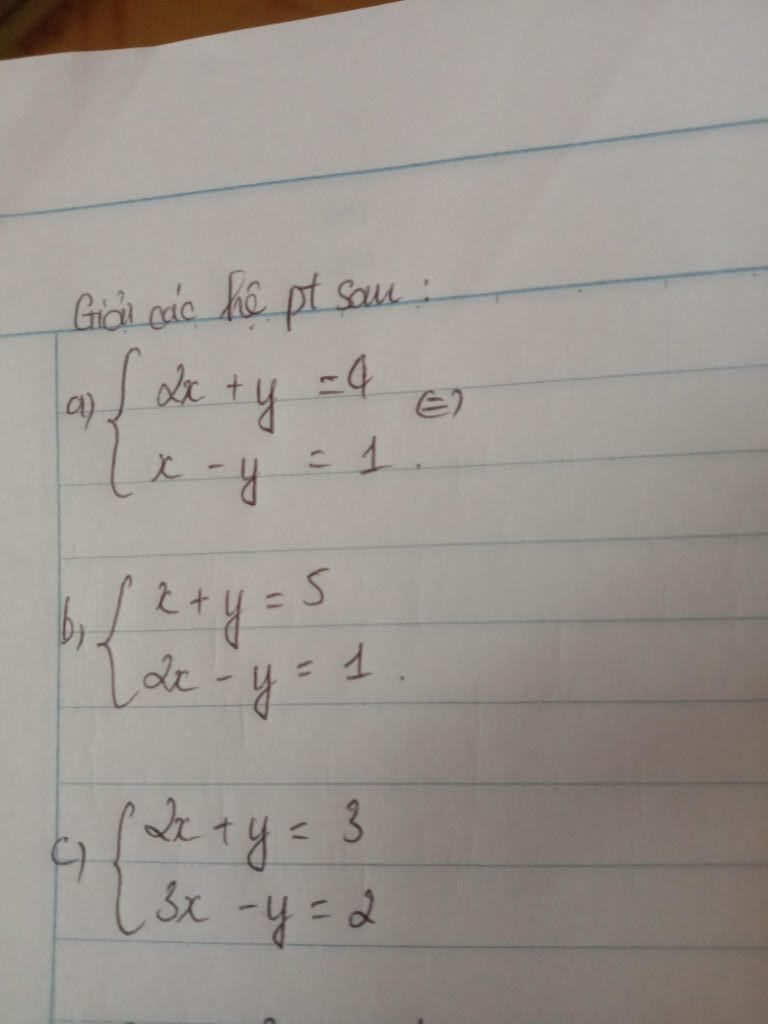 Giải các hệ pt sau :
a) { 2x + y = 4 ⇔
x - y = 1 .
b) { x + y = 5
2x - y = 1 .
c) { 2x + y = 3
3x - y = 2